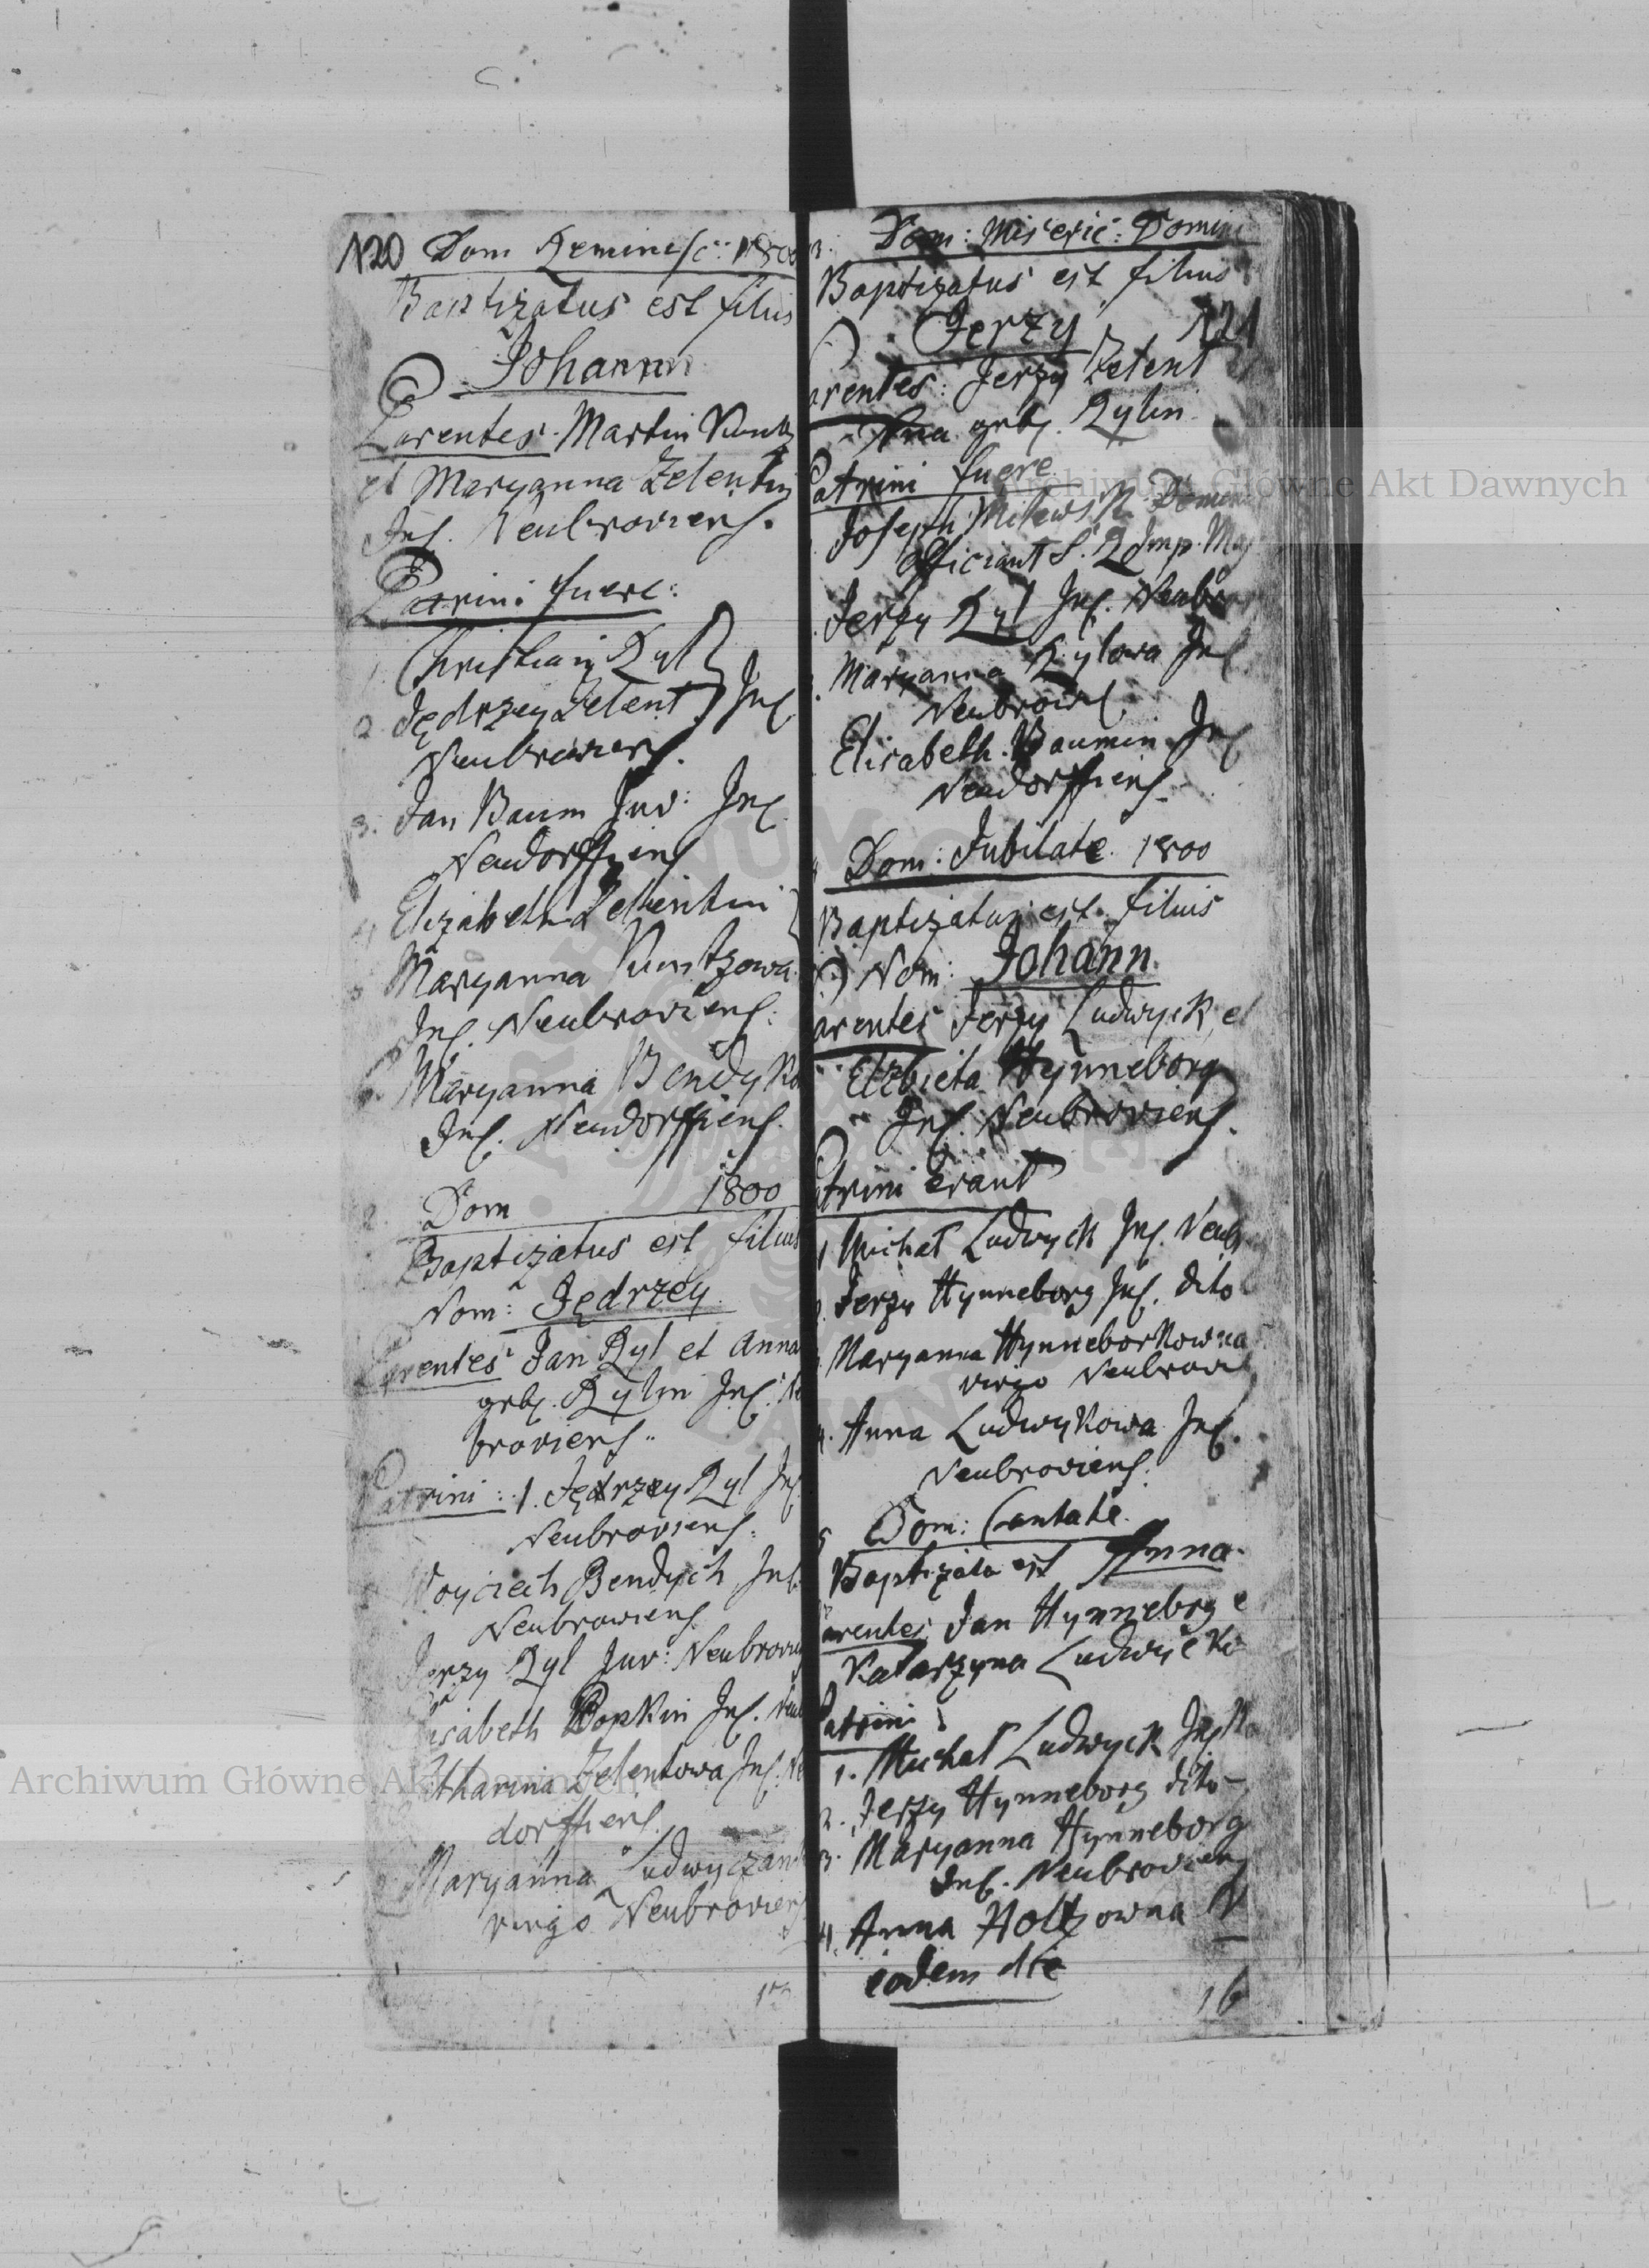 120 Dom Reminisc: 1800
Baptizatus est filius
Johann
Parentes. Martin Kuntz
et Maryanna Zelentin
Inc. Neubroviens.
Patrini fuere:
1. Christian Ryl
2. Jędrzey Zelent Inc
Neubroviens.
3. Jan Baum Juv: Inc
Neudorffiens
4. Elizabeth Zelentin
5 Maryanna Kuntzowa
Inc. Neubroviens:
6. Maryanna Bendyko
Inc. Neudorffiens.
2. Dom 1800
Baptizatus est filius
Nom: Jędrzey.
Parentes Jan Ryl et Anna
geb. Rylin Inc.
broviens..
Patrini: 1. Jędrzey Ryl Inc
Neubroviens.
Woyciech Bendych Inc
Neubrowiens.
Jerzy Ryl Juv: Neubrov
Elisabeth Popkin Inc. Neub
Catharina Zelentowa Inc. Ne
dorffiens.
Maryanna Ludwyczan
virgo Neubroviens
3. Dom: Miseric: Domini
Baptizatus est filius
Jerzy 121
Parentes: Jerzy Zelent
Ana geb. Rylin.
Patrini fuere
Joseph Milewsk
Officiant S. R Imp. Maj
Jerzy Ryl Inc. Neubr
Maryanna Rylowa Inc
Neubrow.
Elisabeth. Baumin Inc
Neudorffiens.
Dom: Jubilate. 1800
Baptizatus est. filius
Nom: Johann.
Parentes Jerzy Ludwyck, et
Elżbieta Hynneborg
Inc. Neubroviens.
Patrini erant
1 Michał Ludwyck Inc. Neub
2. Jerzy Hynneborg Inc. dito
Maryanna Hynneborkowna
virgo Neubrov
4. Anna Ludwykowa Inc.
Neubroviens.
5 Dom: Cantate.
Baptizata est Anna.
Parentes Jan Hynneborg e
Katarzyna Ludwicko
Patrini
1. Michał Ludwyck Inc
2. Jerzy Hynneborg dito
3. Maryanna Hynneborg
Inc. Neubroviens
4. Anna Holtzowna N
eodem die
16
Archiwum Główne Akt Dawnych
Archiwum Główne Akt Dawnych